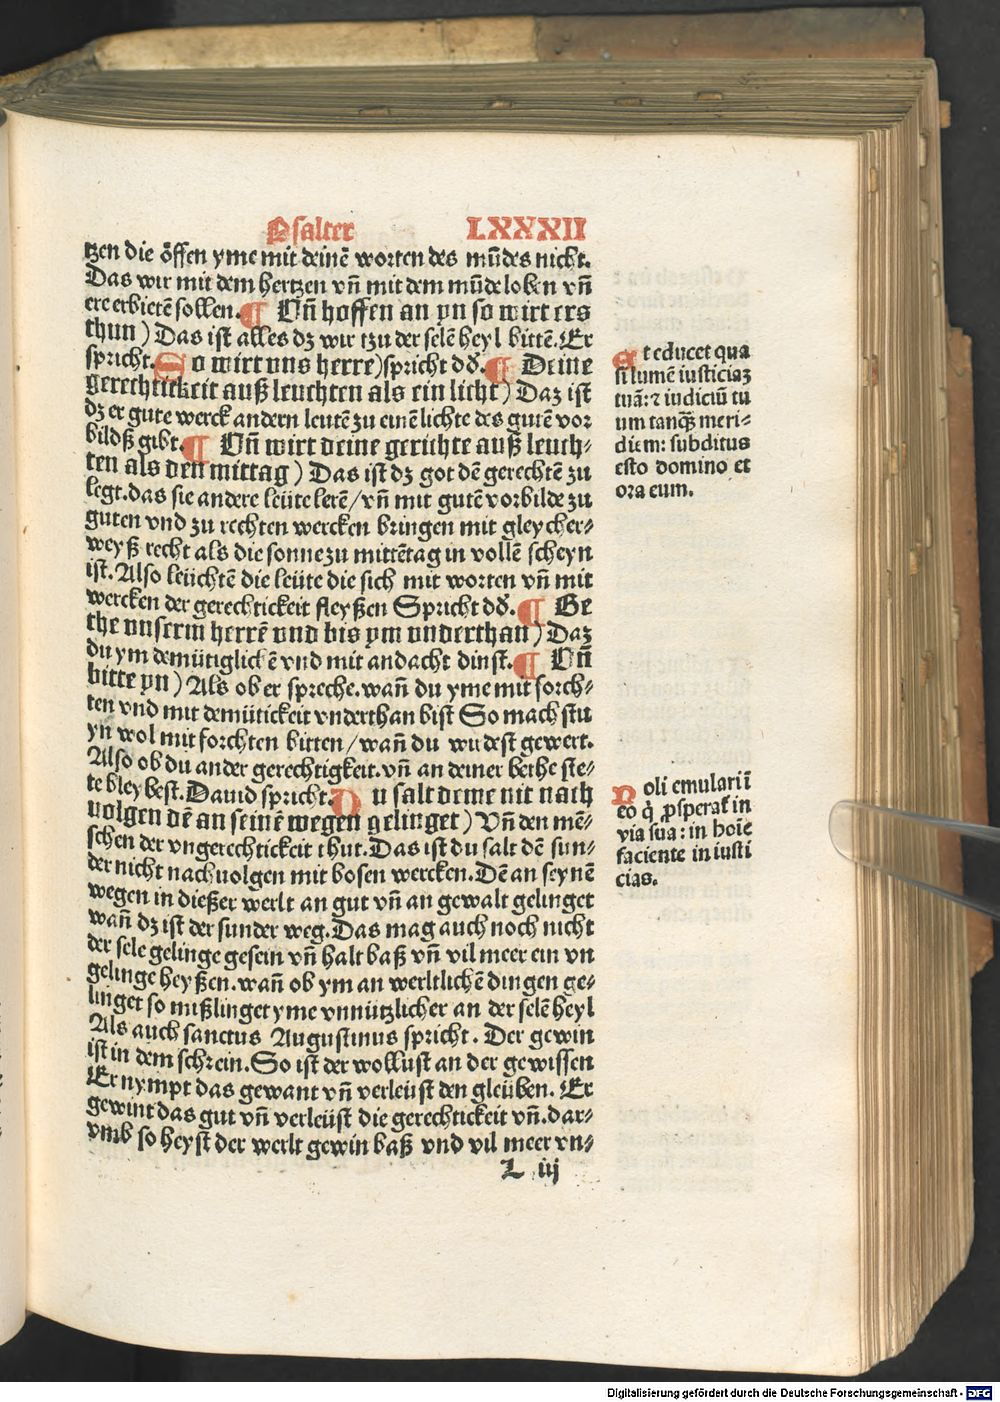 Psalter LXXXII
tzen die öffen yme mit deinē worten des mūdes nicht.
Das wir mit dem hertzen vn̄ mit dem mūde loben vn̄
ere erbietē sollen. ¶ Vn̄ hoffen an yn so wirt ers
thun) Das ist alles dz wir tzu der selē heyl bittē. Er
spricht. So wirt uns herre) spricht dd̓. ¶ Deine
gerechtickeit auß leuchten als ein licht) Daz ist
dz er gute werck andern leutē zu einē lichte des gutē vor
bildß gibt. ¶ Vn̄ wirt deine gerichte auß leuch⸗
ten als den mittag) Das ist dz got dē gerechtē zu
legt. das sie andere leüte lerē/ vn̄ mit gutē vorbilde zu
guten vnd zu rechten wercken bringen mit gleycher⸗
weyß recht als die sonne zu mittētag in vollē scheyn
ist. Also leüchtē die leüte die sich mit worten vn̄ mit
wercken der gerechtickeit fleyßen Spricht dd̓. ¶ Be
the unserm herrē und bis ym underthan) Daz
du ym demütiglichē vnd mit andacht dinst. ¶ Vn̄
bitte yn) Als ob er spreche. wan̄ du yme mit forch⸗
ten vnd mit demütickeit vnderthan bist So machstu
yn wol mit forchten bitten/ wan̄ du wirdest gewert.
Also ob du an der gerechtigkeit. vn̄ an deiner bethe ste⸗
te bleybest. Dauid spricht. Du salt deme nit nach
uolgen dē an seinē wegen gelinget) Vn̄ den mē⸗
schen der vngerechtickeit thut. Das ist du salt dē sun⸗
der nicht nachuolgen mit bosen wercken. Dē an seynē
wegen in dießer werlt an gut vn̄ an gewalt gelinget
wan̄ dz ist der sunder weg. Das mag auch noch nicht
der sele gelinge gesein vn̄ halt baß vn̄ vil meer ein vn
gelinge heyßen. wan̄ ob ym an werltlichē dingen ge⸗
linget so mißlinget yme vnnützlicher an der selē heyl
Als auch sanctus Augustinus spricht. Der gewin
ist in dem schrein. So ist der wollust an der gewissen
Er nympt das gewant vn̄ verleüst den gleüben. Er
gewint das gut vn̄ verleüst die gerechtickeit vn̄. dar⸗
vmb so heyst der werlt gewin baß vnd vil meer vn⸗
L iij
Et educet qua
si lumē iusticiaꝫ
tuā: ⁊ iudiciū tu
um tanqꝫ meri⸗
diem: subditus
esto domino et
ora eum.
Noli emulari ī
eo q̇ ꝓsperat̉ in
via sua: in hoīe
faciente in iusti
cias.
Digitalisierung gefördert durch die Deutsche Forschungsgemeinschaft - DFG